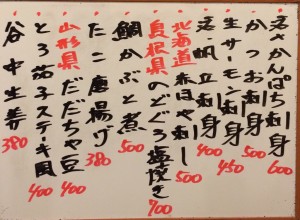 活さかんぱち刺身 600
かつお刺身 500
生サーモン刺身 450
活・帆立刺身 400
北海道 赤ほや刺し 500
島根県 のどぐろ塩焼き 700
鯛かぶと煮 500
たこ唐揚げ 380
山形県 だだちゃ豆 400
とろ茄子ステキ風 400
谷中生姜 380